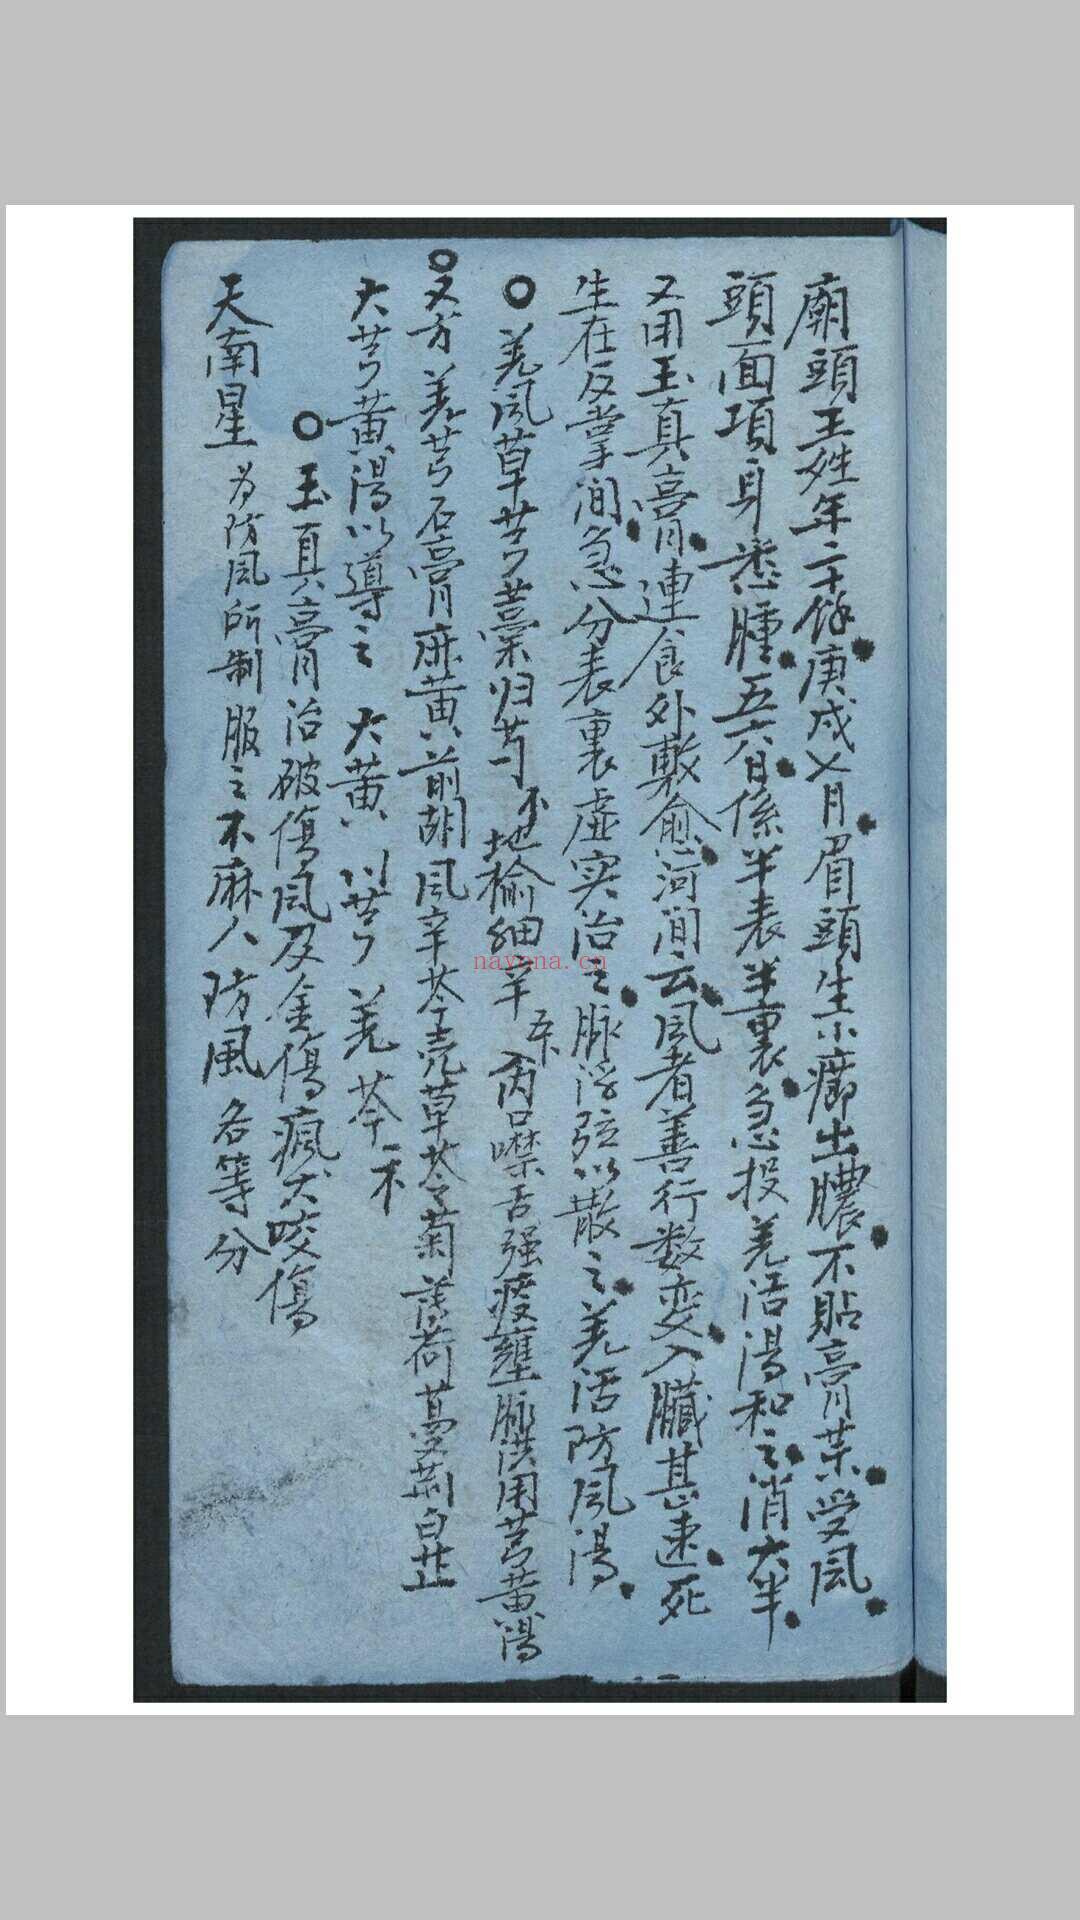 廟頭王姓年二十餘庚戌七月眉頭生小癤出膿不貼膏葉受風
頭面項身悉腫五六日係半表半裏急投羌活湯和之消大半
又用玉真膏連食外敷愈河间云風者善行数变入臟甚速死
生在反掌间急分表裏虛实治之脉浮弦以散之羌活防風湯
羌風草芎藁归芍 地榆细辛 内口噤舌强痰壅脉洪用芎黄湯
又方羌芎石膏麻黄前胡風辛芩壳草苓菊薄荷蔓荆白芷
大芎黄湯以導之 大黄 川芎 羌 芩
玉真膏治破傷風及金傷瘋犬咬傷
天南星为防風所制服之不麻人防風各等分
nayona.cn